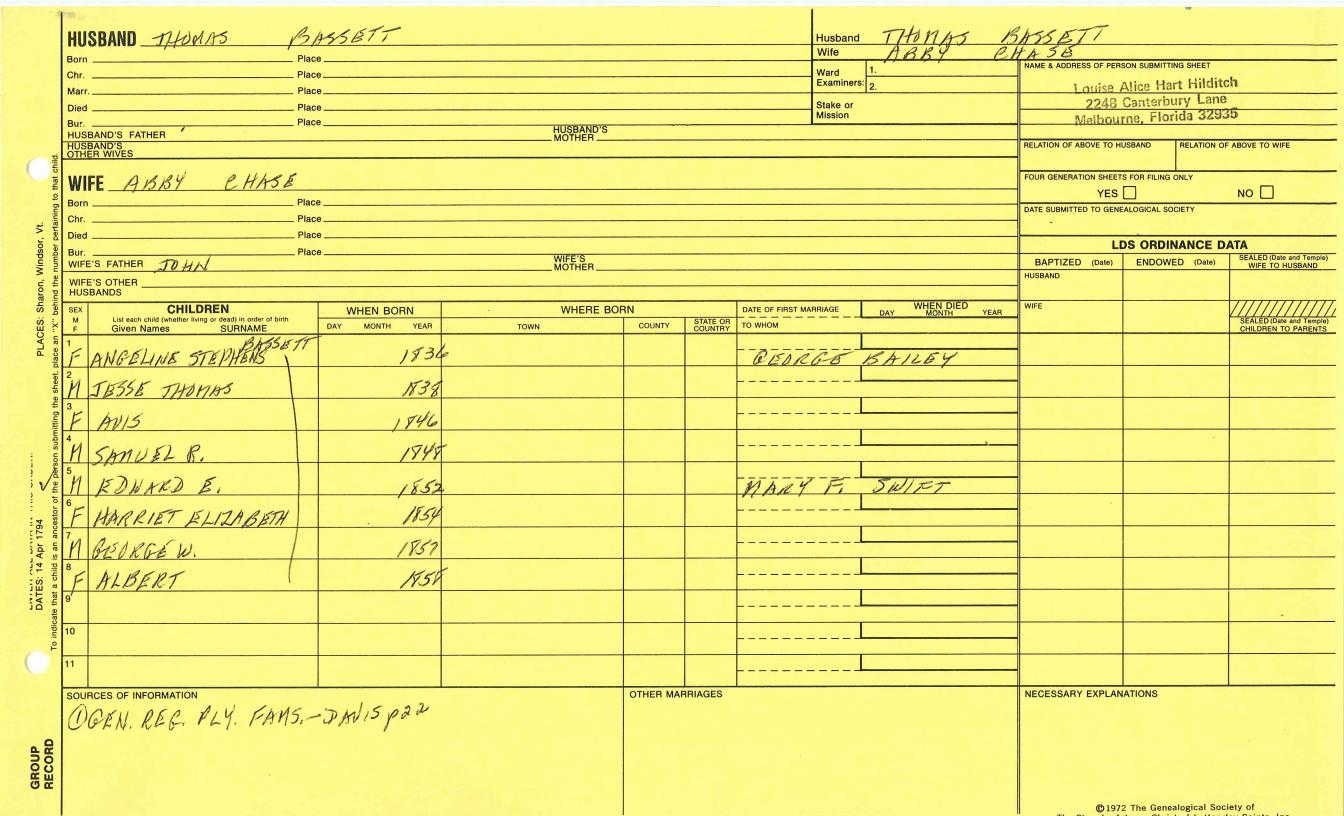 HUSBAND THOMAS BASSETT
Born Place
Chr. Place
Marr. Place
Died Place
Bur. Place
HUSBAND'S FATHER HUSBAND'S MOTHER
HUSBAND'S OTHER WIVES
WIFE ABBY CHASE
Born Place
Chr. Place
Died Place
Bur. Place
WIFE'S FATHER JOHN WIFE'S MOTHER
WIFE'S OTHER HUSBANDS
Husband THOMAS BASSETT
Wife ABBY CHASE
Ward Examiners: 1.
2.
Stake or Mission
NAME & ADDRESS OF PERSON SUBMITTING SHEET
Louise Alice Hart Hilditch
2248 Canterbury Lane
Melbourne, Florida 32935
RELATION OF ABOVE TO HUSBAND RELATION OF ABOVE TO WIFE
FOUR GENERATION SHEETS FOR FILING ONLY
YES NO
DATE SUBMITTED TO GENEALOGICAL SOCIETY
LDS ORDINANCE DATA
BAPTIZED (Date) ENDOWED (Date) SEALED (Date and Temple) WIFE TO HUSBAND
HUSBAND
WIFE
SEALED (Date and Temple) CHILDREN TO PARENTS
SEX M F
CHILDREN
List each child (whether living or dead) in order of birth
Given Names SURNAME
WHEN BORN
DAY MONTH YEAR
WHERE BORN
TOWN COUNTY STATE OR COUNTRY
DATE OF FIRST MARRIAGE
TO WHOM
WHEN DIED
DAY MONTH YEAR
BASSETT
1 F ANGELINE STEPHENS 1836 GEORGE BAILEY
2 M JESSE THOMAS 1838
3 F AVIS 1846
4 M SAMUEL R. 1848
5 M EDWARD E. 1852 MARY F. SWIFT
6 F HARRIET ELIZABETH 1854
7 M GEORGE W. 1857
8 F ALBERT 1858
9
10
11
SOURCES OF INFORMATION
① GEN. REG. PLY. FAMS.-DAVIS p22
OTHER MARRIAGES
NECESSARY EXPLANATIONS
©1972 The Genealogical Society of
PLACES: Sharon, Windsor, Vt.
DATES: 14 Apr 1794
To indicate that a child is an ancestor of the person submitting the sheet, place an "X" behind the number pertaining to that child.
GROUP RECORD